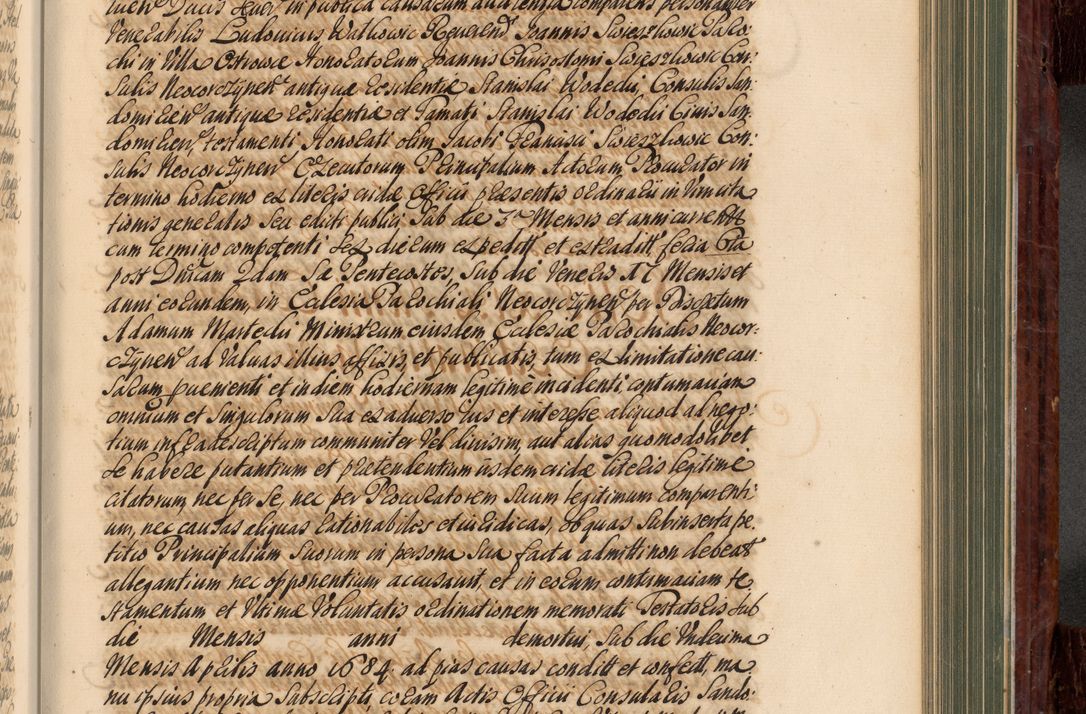 Venerabilis Ludovicus Watkowic Reverend Joannis Swieszkowic Paro-
chi in Villa Ostrowe Honoratorum Joannis Chrisostomi Swieszkowic Con-
sulis Neocorczynen antiquæ Residentiæ Stanislai Wodecki, Consulis San-
domirien antiquæ Residentiæ et Famati Stanislai Wodecki Civis San-
domirien, testamenti Honorati olim Jacobi Francisci Swieszkowic Con-
sulis Neocorczynen Executorum Principalium Actorum Procurator in
termino hodierno ex literis cridæ Officii præsentis ordinarii in vim cita-
tionis generalis seu edicti publici sub die 3 Mensis et anni currentis
cum termino competenti sex dierum expedit et extradit feria 6ta
post Dnicam 2dam S Pentecostes, sub die Veneris XI Mensis et
anni eorundem, in Ecclesia Parochiali Neocorczynen per Discretum
Adamum Martecki Ministrum eiusdem Ecclesiæ Parochialis Neocor-
czynen ad Valvas illius affixis, et publicatis, tum ex limitatione cau-
sarum præmenti et in diem hodiernam legitime incidenti contumaciam
omnium et singulorum sua ex adverso ius et interesse aliquod ad nego-
tium infradescriptum communiter vel divisim, aut alias quomodolibet
se habere putantium et prætendentium iisdem cridæ literis legitime
citatorum, nec per se, nec per Procuratorem suum legitimum comparenti-
um, nec causas aliquas rationabiles et iuridicas, ob quas subinserta pe-
titio Principalium suorum in persona sua facta admitti non debeat
allegantium nec opponentium accusavit, et in eorum contumaciam te-
stamentum et Ultimæ Voluntatis ordinationem memorati Testatoris sub
die Mensis anni demortui, sub die Undecima
Mensis Aprilis anno 1684 ad pias causas condit et confect, ma-
nu ipsius propria subscripti, coram Actis Officii Consularis Sando-